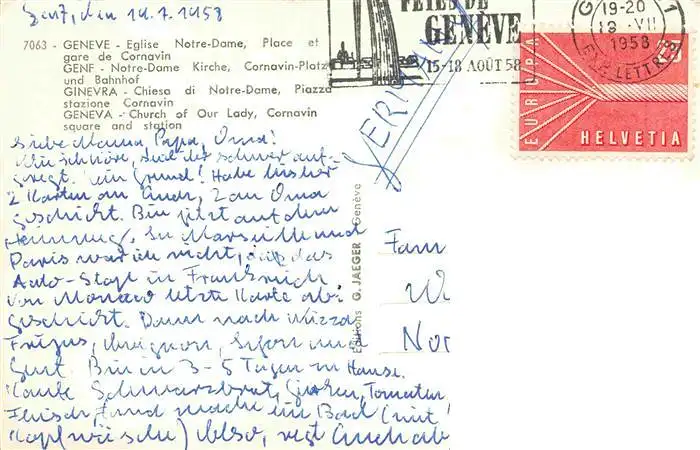 Genf, den 19.7.1958
7063 - GENEVE - Eglise Notre-Dame, Place et
gare de Cornavin
GENF - Notre-Dame Kirche, Cornavin-Platz
und Bahnhof
GINEVRA - Chiesa di Notre-Dame, Piazza
stazione Cornavin
GENEVA - Church of Our Lady, Cornavin
square and station
FETES DE
GENÈVE
15-18 AOÛT 58
G 1
19-20
19. VII
1958
EXP. LETTRES
EUROPA
HELVETIA
Liebe Mama, Papa, Oma!
Wie schöne, seid schwer auf-
geregt. Kein Grund! Habe bisher
2 Karten an Euch, 2 an Oma
geschickt. Bin jetzt auf dem
Heimweg. In Marseille und
Paris war ich nicht, das
Auto-Stop in Frankreich
Von Monaco letzte Karte ab-
geschickt. Dann nach Nizza
Frejus, Avignon, Lyon und
Genf. Bin in 3-5 Tagen zu Hause.
Kauft Schwarzbrot, Gurken, Tomaten
Fleisch, und macht ein Bad (mit
Kopfwäsche) Also, regt Euch ab
Editions G. JAEGER Genève
Fam
W
Nor